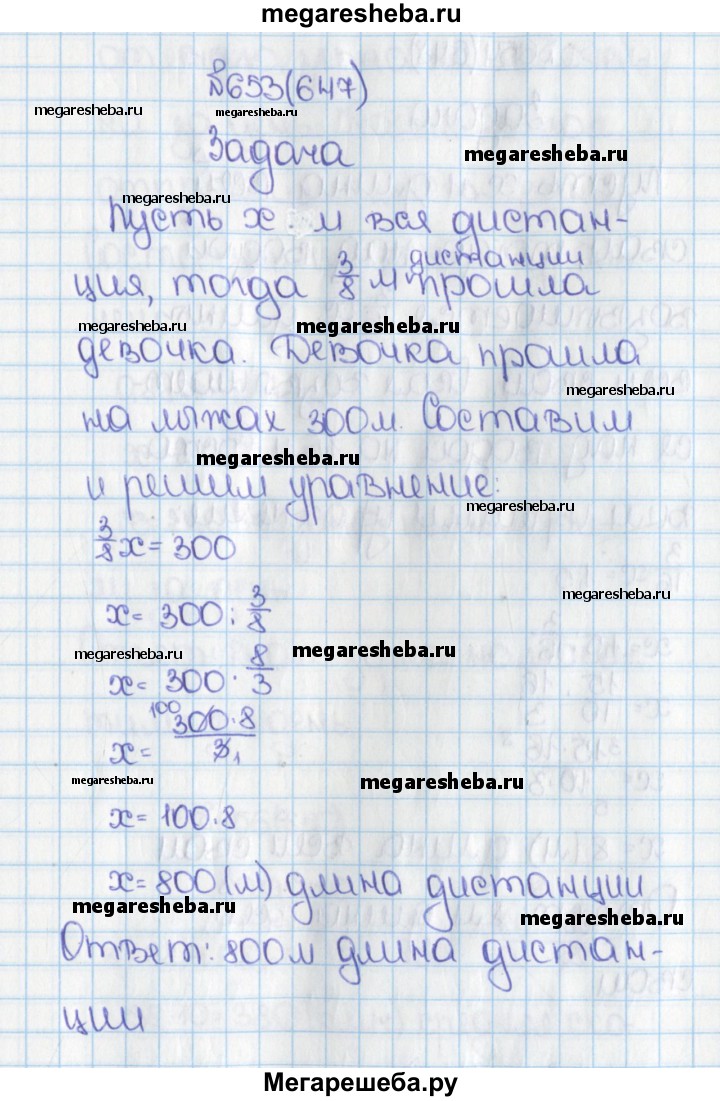 megaresheba.ru
№653(647)
megaresheba.ru
megaresheba.ru
Задача
megaresheba.ru
megaresheba.ru
Пусть x м вся дистан-
дистанции
ция, тогда 3/8 м прошла
megaresheba.ru
megaresheba.ru
девочка. Девочка прошла
megaresheba.ru
на лыжах 300м. Составим
megaresheba.ru
и решим уравнение:
megaresheba.ru
3/8 x = 300
megaresheba.ru
x = 300 : 3/8
megaresheba.ru
megaresheba.ru
x = 300 · 8/3
100
x = 300·8/3 1
megaresheba.ru
megaresheba.ru
x = 100·8
x = 800 (м) длина дистанции
megaresheba.ru
megaresheba.ru
Ответ: 800м длина дистан-
ции
Мегарешеба.ру